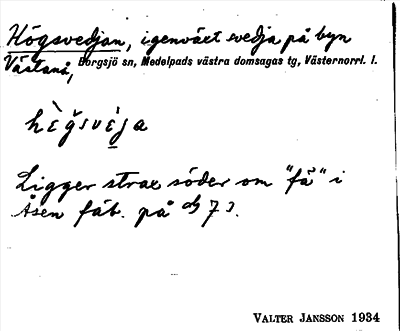 Högsvedjan, igenväxt svedja på byn
Västanå, Borgsjö sn, Medelpads västra domsagas tg, Västernorrl. l.
Ligger strax söder om "få" i
Åsen fäb. på 73.
VALTER JANSSON 1934